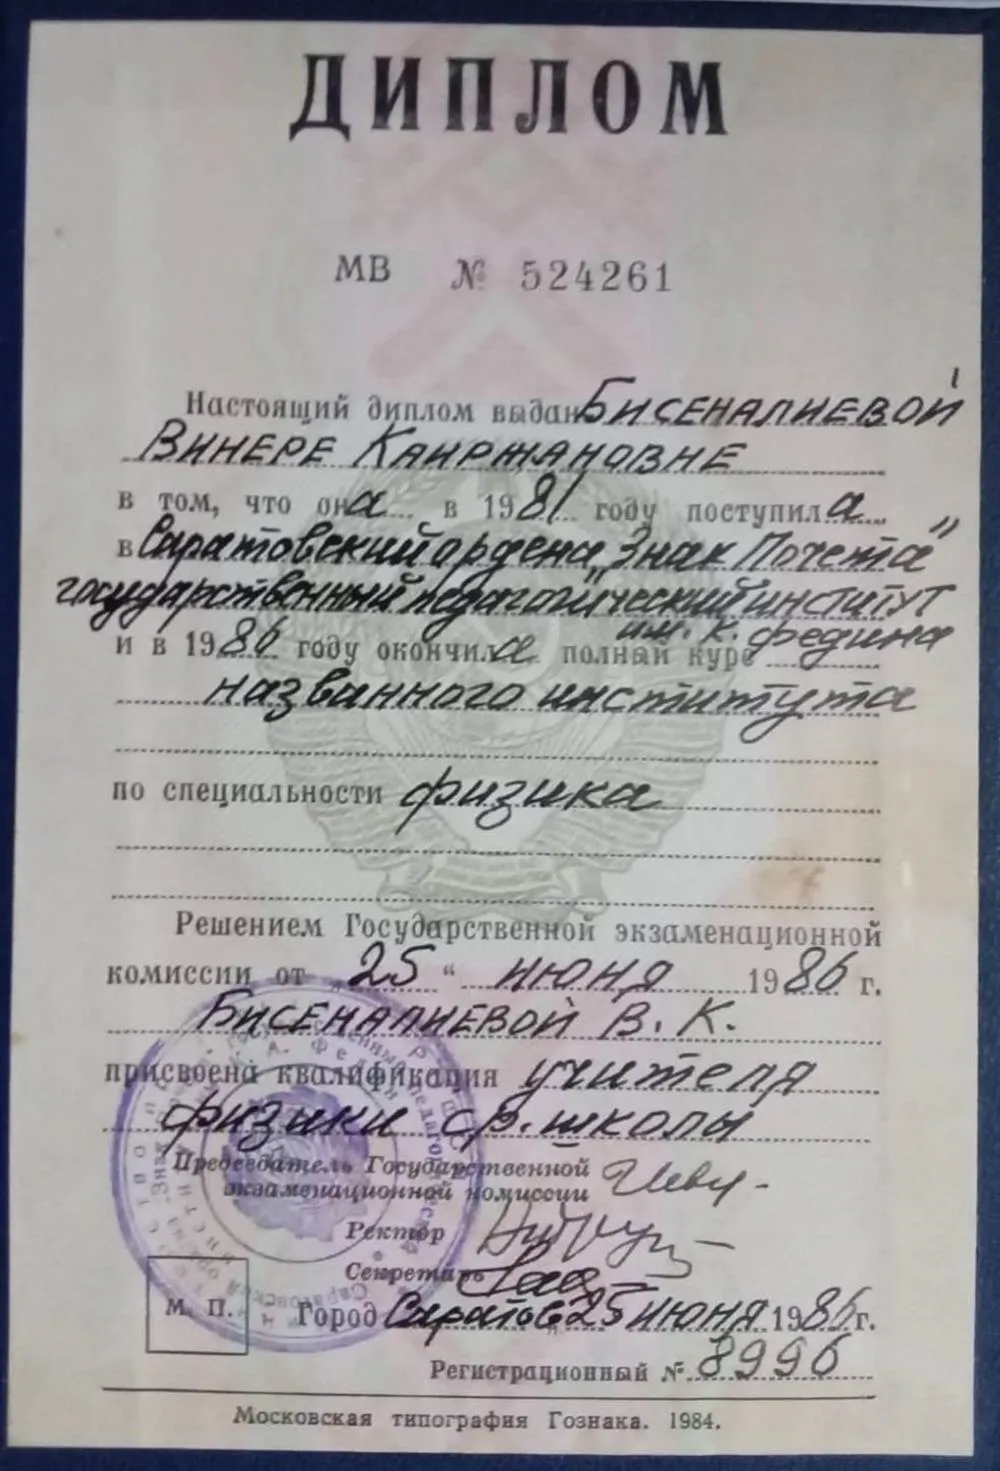 ДИПЛОМ
МВ № 524261
Настоящий диплом выдан Бисеналиевой
Винере Каиржановне
в том, что она в 1981 году поступила
в Саратовский ордена „Знак Почета"
государственный педагогический институт
им. К. Федина
и в 1986 году окончила полный курс
названного института
по специальности физика
Решением Государственной экзаменационной
комиссии от „25" июня 1986 г.
Бисеналиевой В. К.
присвоена квалификация учителя
физики ср. школы
Председатель Государственной
экзаменационной комиссии
Ректор
Секретарь
М. П. Город Саратов 25 июня 1986 г.
Регистрационный № 8996
Московская типография Гознака. 1984.